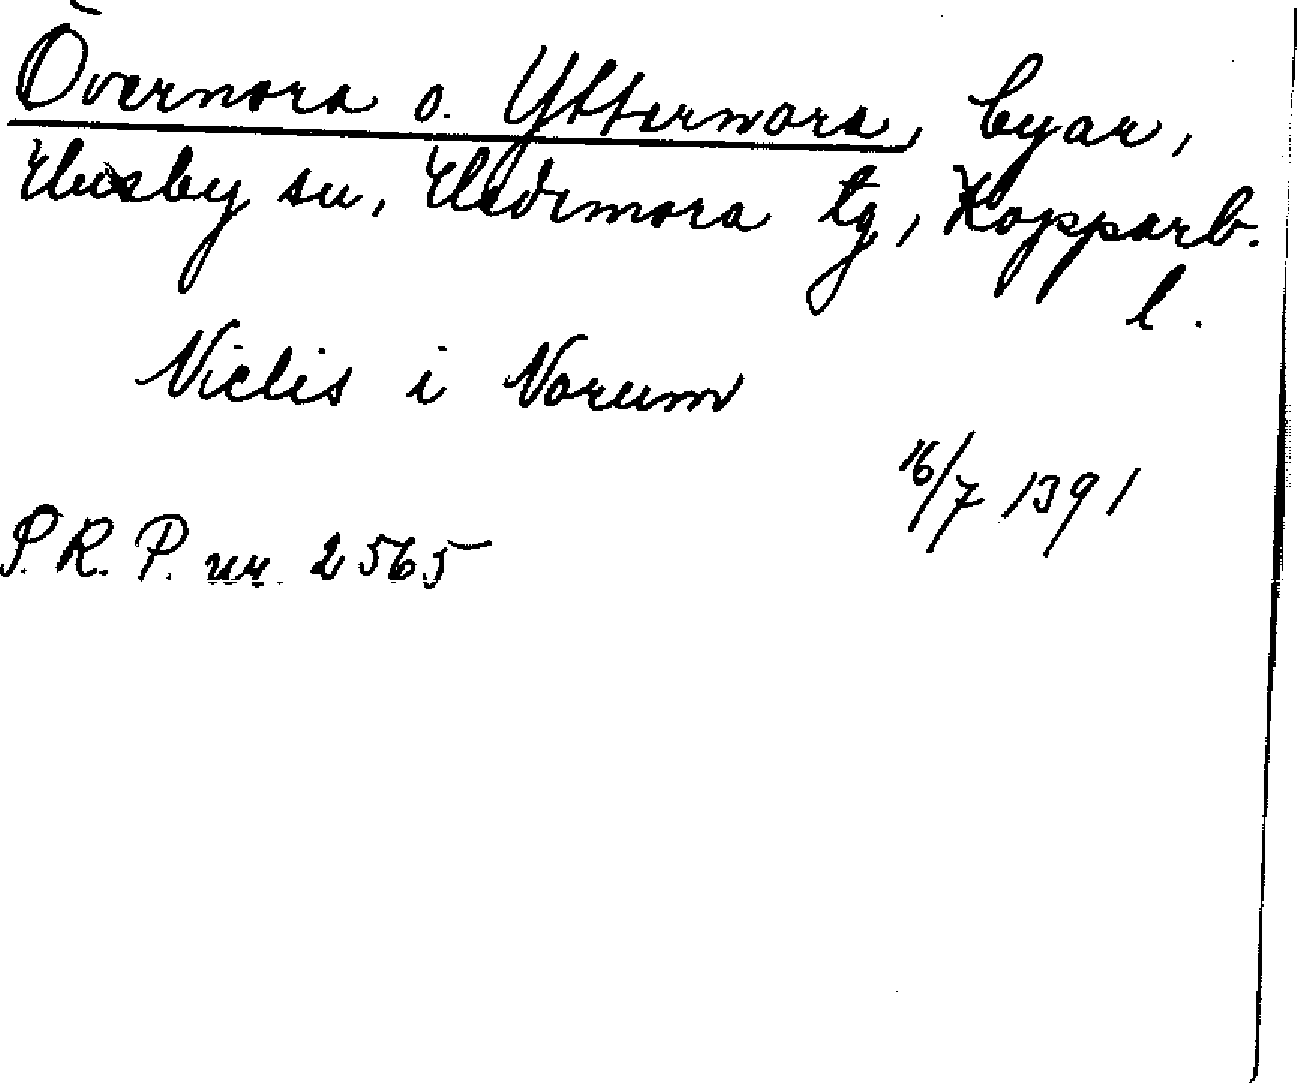 Övernora o. Ytternora, byar,
Husby sn, Hedemora tg, Kopparb.
l.
Niclis i Norum
16/7 1391
P.R.P. nr. 2565